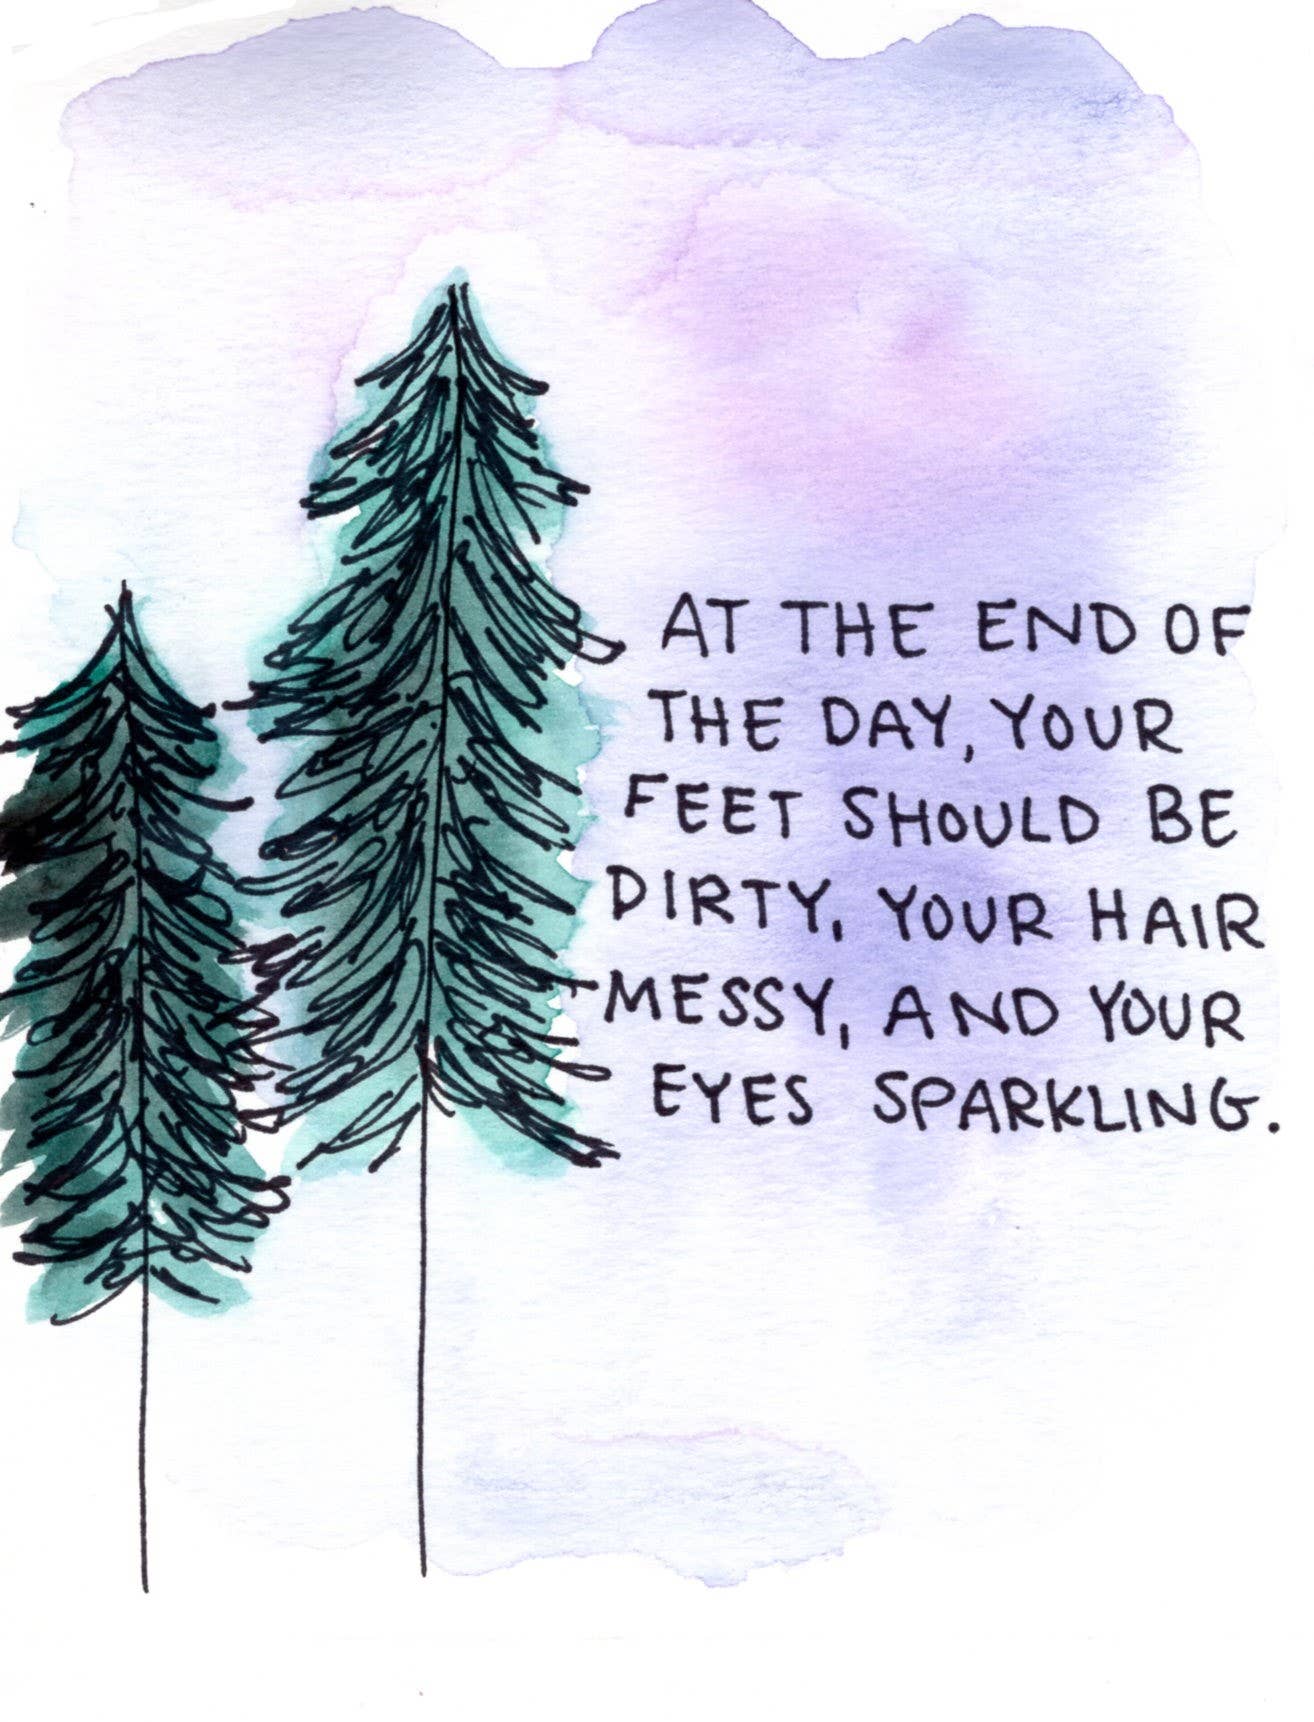 AT THE END OF
THE DAY, YOUR
FEET SHOULD BE
DIRTY, YOUR HAIR
MESSY, AND YOUR
EYES SPARKLING.